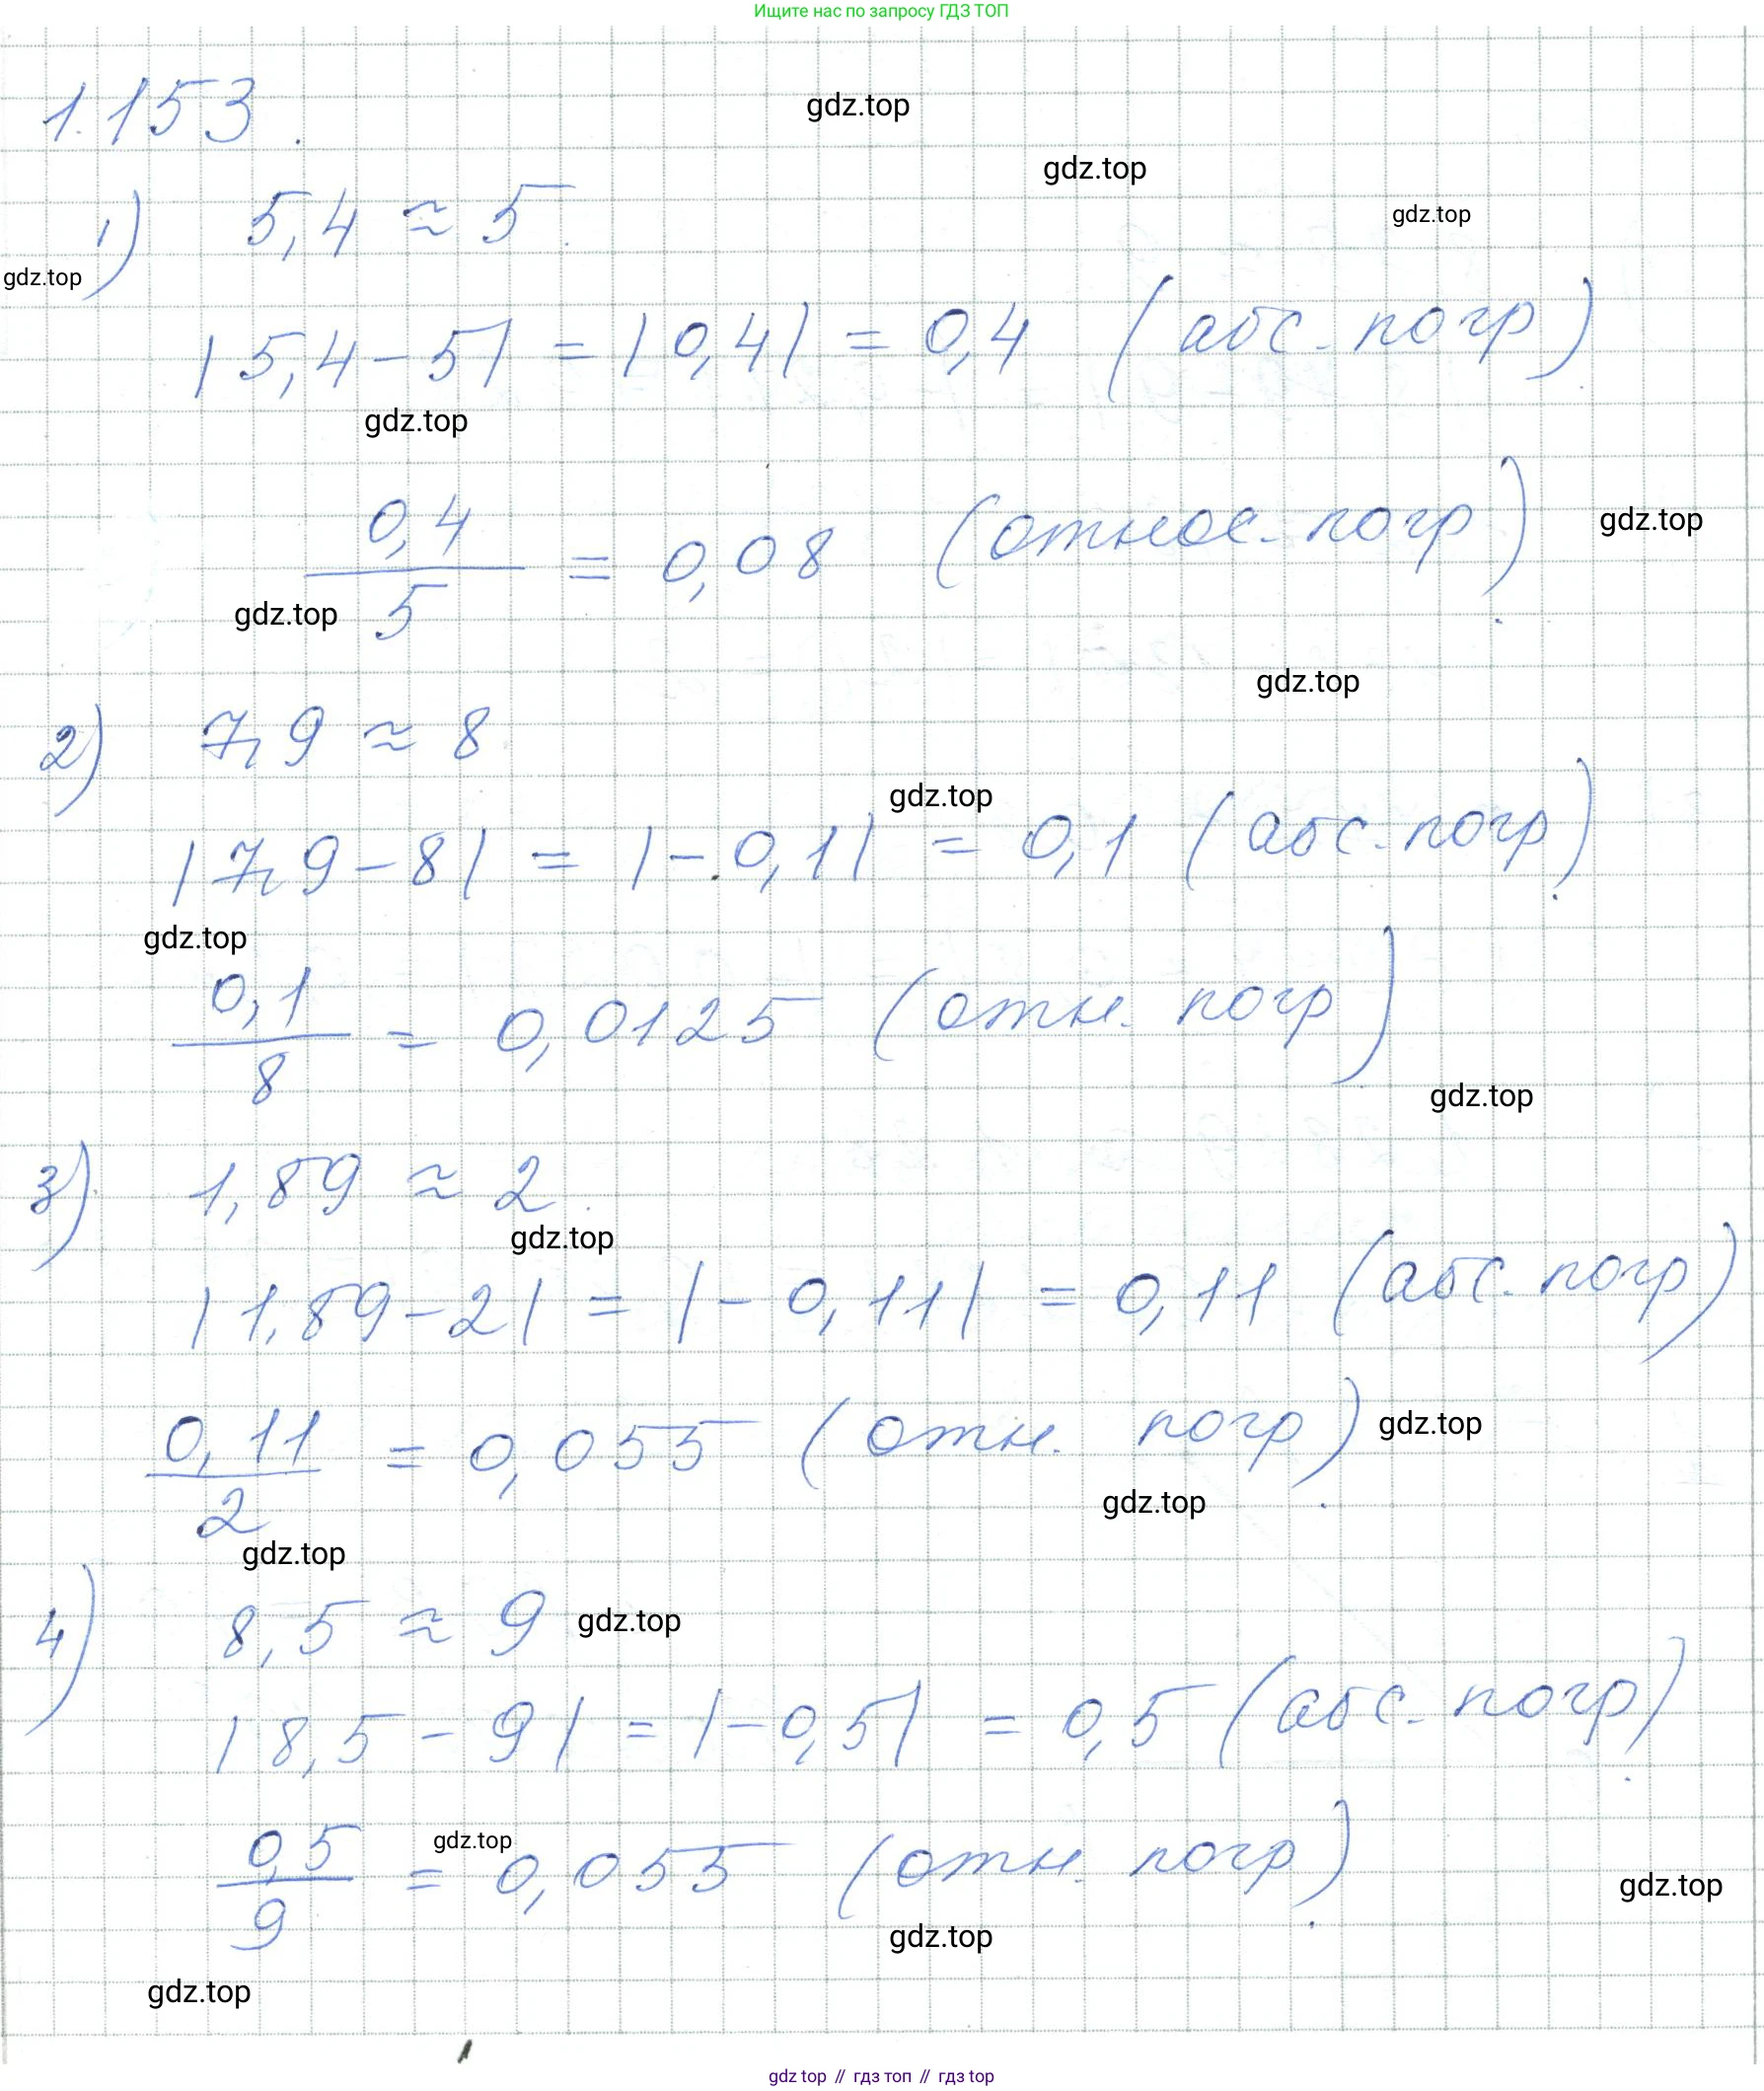 Ищите нас по запросу ГДЗ ТОП
1.153.
gdz.top
gdz.top
1) 5,4 ≈ 5.
gdz.top
gdz.top
|5,4 - 5| = |0,4| = 0,4 (абс. погр)
gdz.top
0,4/5 = 0,08 (относ. погр)
gdz.top
gdz.top
gdz.top
2) 7,9 ≈ 8
gdz.top
|7,9 - 8| = |-0,1| = 0,1 (абс. погр)
gdz.top
0,1/8 = 0,0125 (отн. погр)
gdz.top
3) 1,89 ≈ 2.
gdz.top
|1,89 - 2| = |-0,11| = 0,11 (абс. погр)
0,11/2 = 0,055 (отн. погр)
gdz.top
gdz.top
gdz.top
4) 8,5 ≈ 9
gdz.top
|8,5 - 9| = |-0,5| = 0,5 (абс. погр)
gdz.top
0,5/9 = 0,055 (отн. погр)
gdz.top
gdz.top
gdz.top
gdz top // гдз топ // гдз top